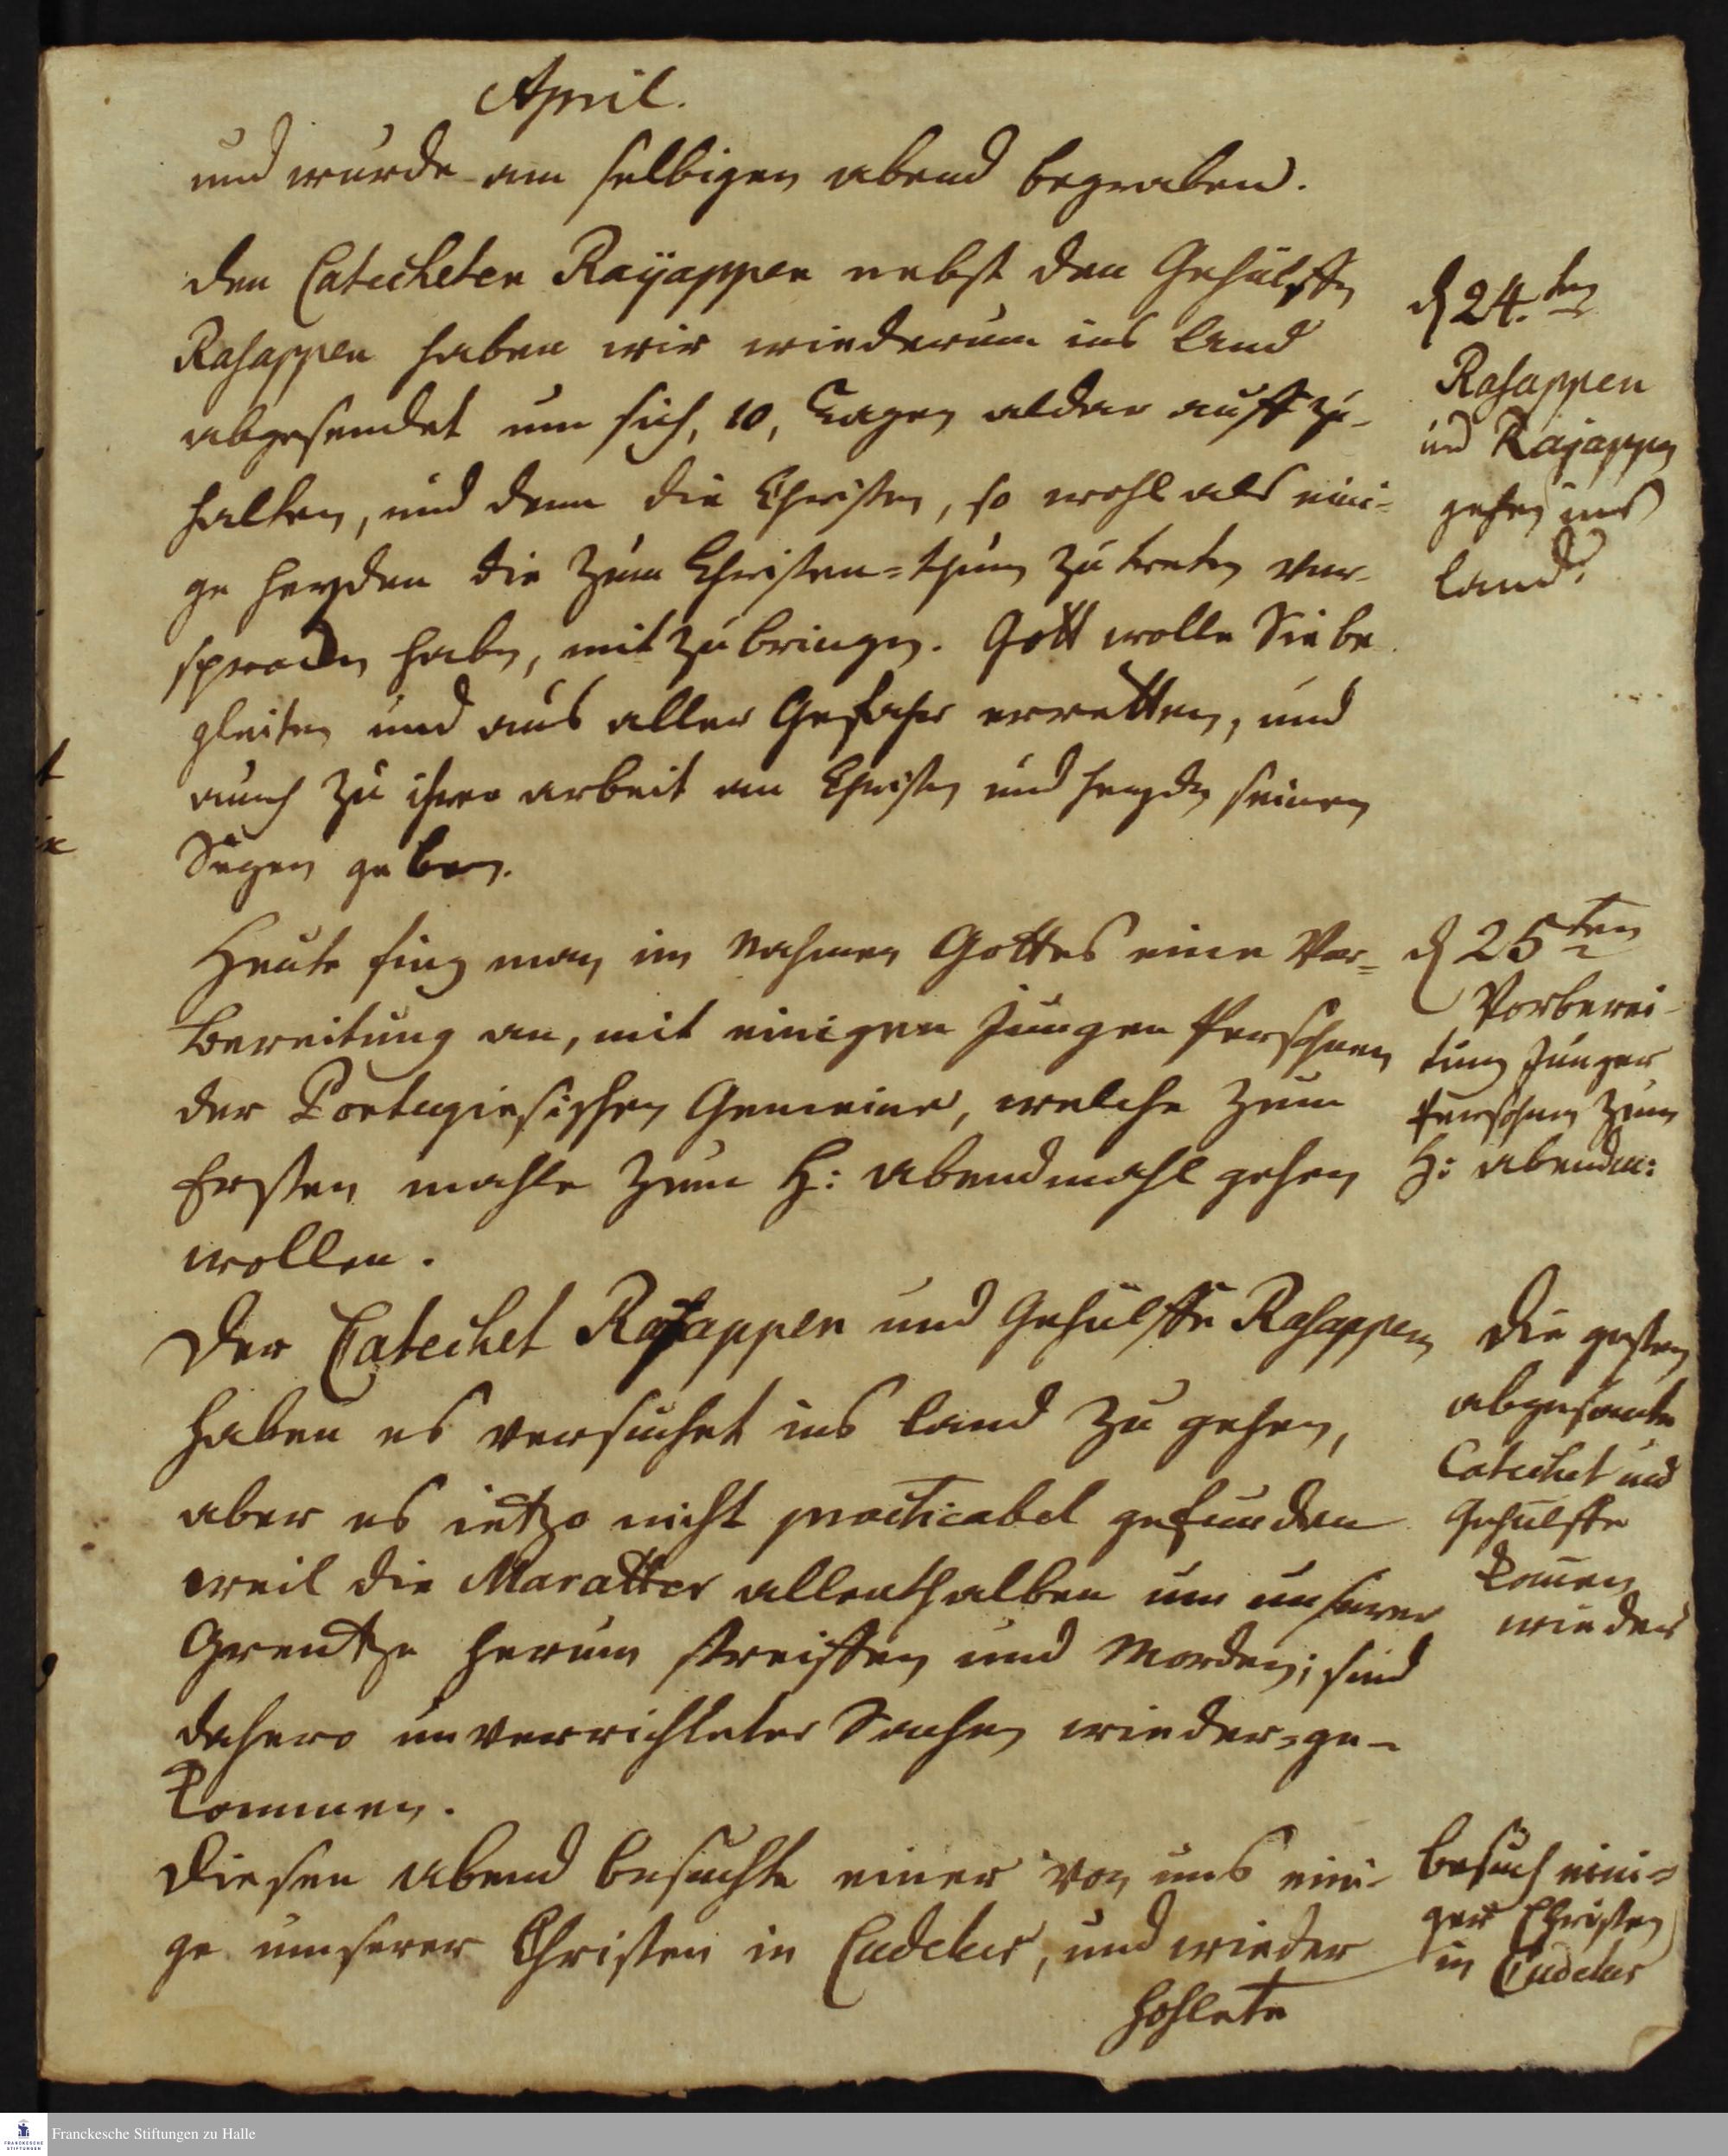 April.
und wurde am selbigen abend begraben.
den Catecheten Rayappen nebst den Gehülffen
Rasappen haben wir wiederum ins land
abgesendet um sich, 10, Tagen aldar auff zu-
halten, und denn die Christen, so wohl als eini-
ge heyden die zum Christen-thum zu treten ver-
sprochen haben, mit zu bringen. Gott wolle Sie be
gleiten und aus aller Gefahr erretten, und
auch zu ihrer arbeit an Christen und heyden seinen
Segen geben.
d 24.ten
Rasappen
und Rajappen
gehen ins
land.
Heute fing man im nahmen Gottes eine Vor-
bereitung an, mit einigen jungen Persohnen
der Portugiesischen Gemeine, welche zum
Ersten mahle zum H: abendmahl gehen
wollen.
d 25ten
Vorberei-
tung junger
Persohnen zum
H: abendm:
Der Catechet Rajappen und Gehülffe Rasappen
haben es versuchet ins land zu gehen,
aber es ietzo nicht practicabel gefunden
weil die Maratter allenthalben um unserer
Grentze herum streiffen und Morden; sind
dahero unverrichteter Sachen wieder-ge-
kommen.
Die gestern
abgesante
Catechet und
Gehülffe
komen
wieder
Diesen abend besuchte einer von uns eini-
ge unserer Christen in Cudelur, und wieder
hohlete
besuch eini-
ger Christen
in Cudelur
Franckesche Stiftungen zu Halle
FRANCKESCHE
STIFTUNGEN